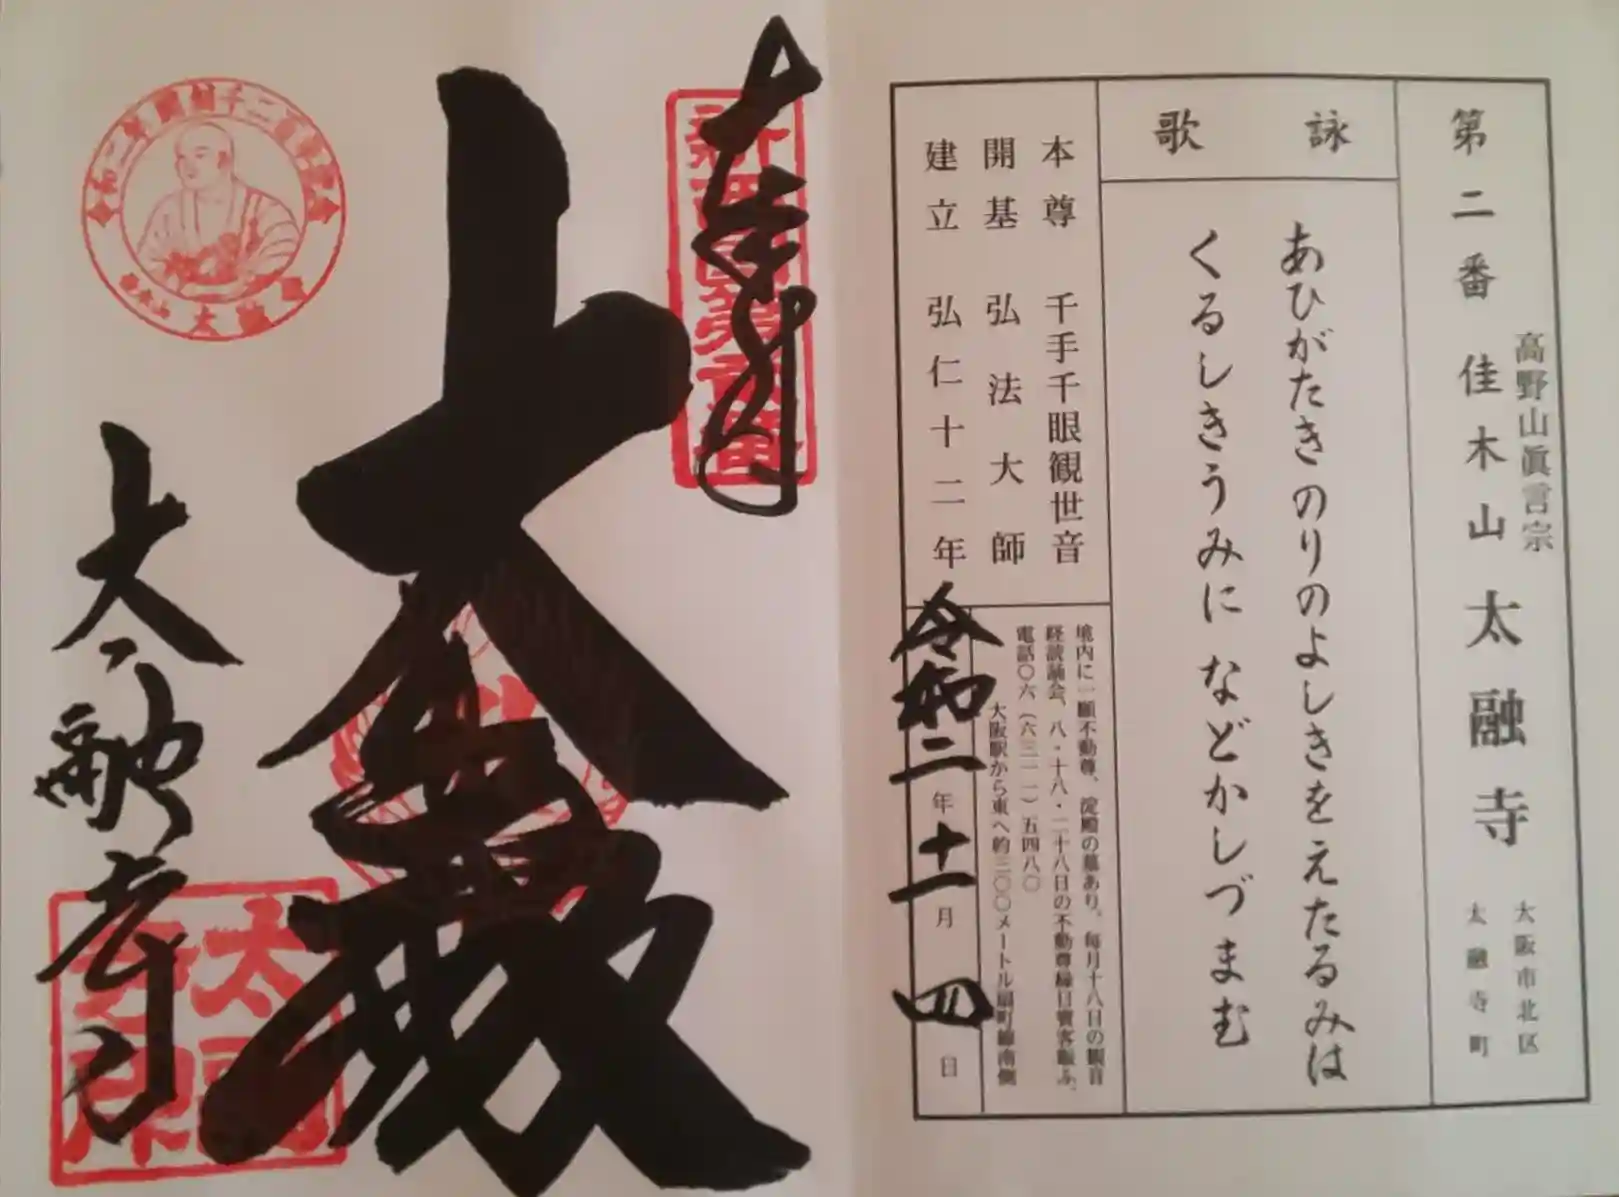 高野山眞言宗
第二番 佳木山 太融寺
大阪市北区
太融寺町
詠歌
あひがたき のりのよしきをえたるみは
くるしきうみに などかしづまむ
本尊 千手千眼観世音
開基 弘法大師
建立 弘仁十二年
境内に一願不動尊、淀殿の墓あり。毎月十八日の観音
経読誦会、八・十八・二十八日の不動尊縁日賓客賑ふ。
電話〇六(六三一一)五四八〇
大阪駅から東へ約三〇〇メートル扇町線南側
令和二年十一月四日
奉拝
大悲殿
太融寺